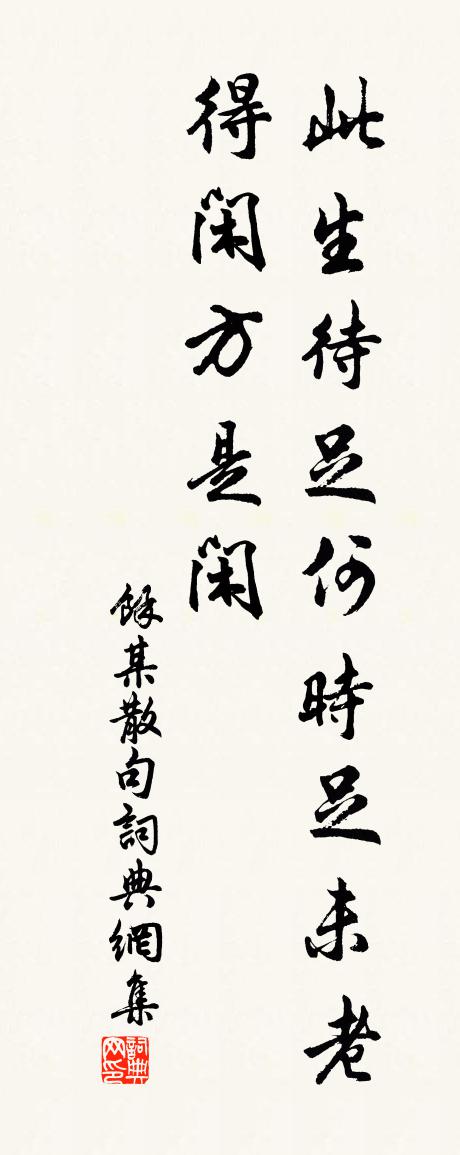 此生待足何時足未老
得閑方是閑
餘某散句詞典網集
詞典网印